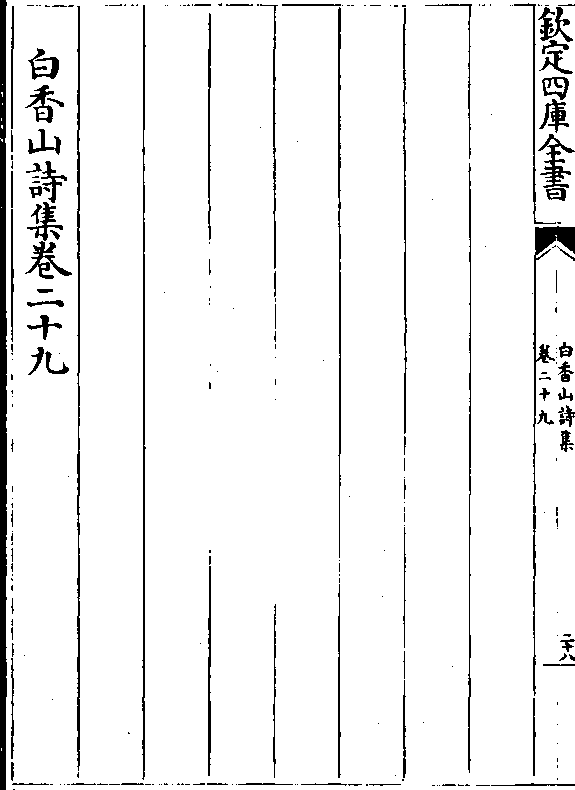 欽定四庫全書
白香山詩集
卷二十九
二十八
白香山詩集卷二十九